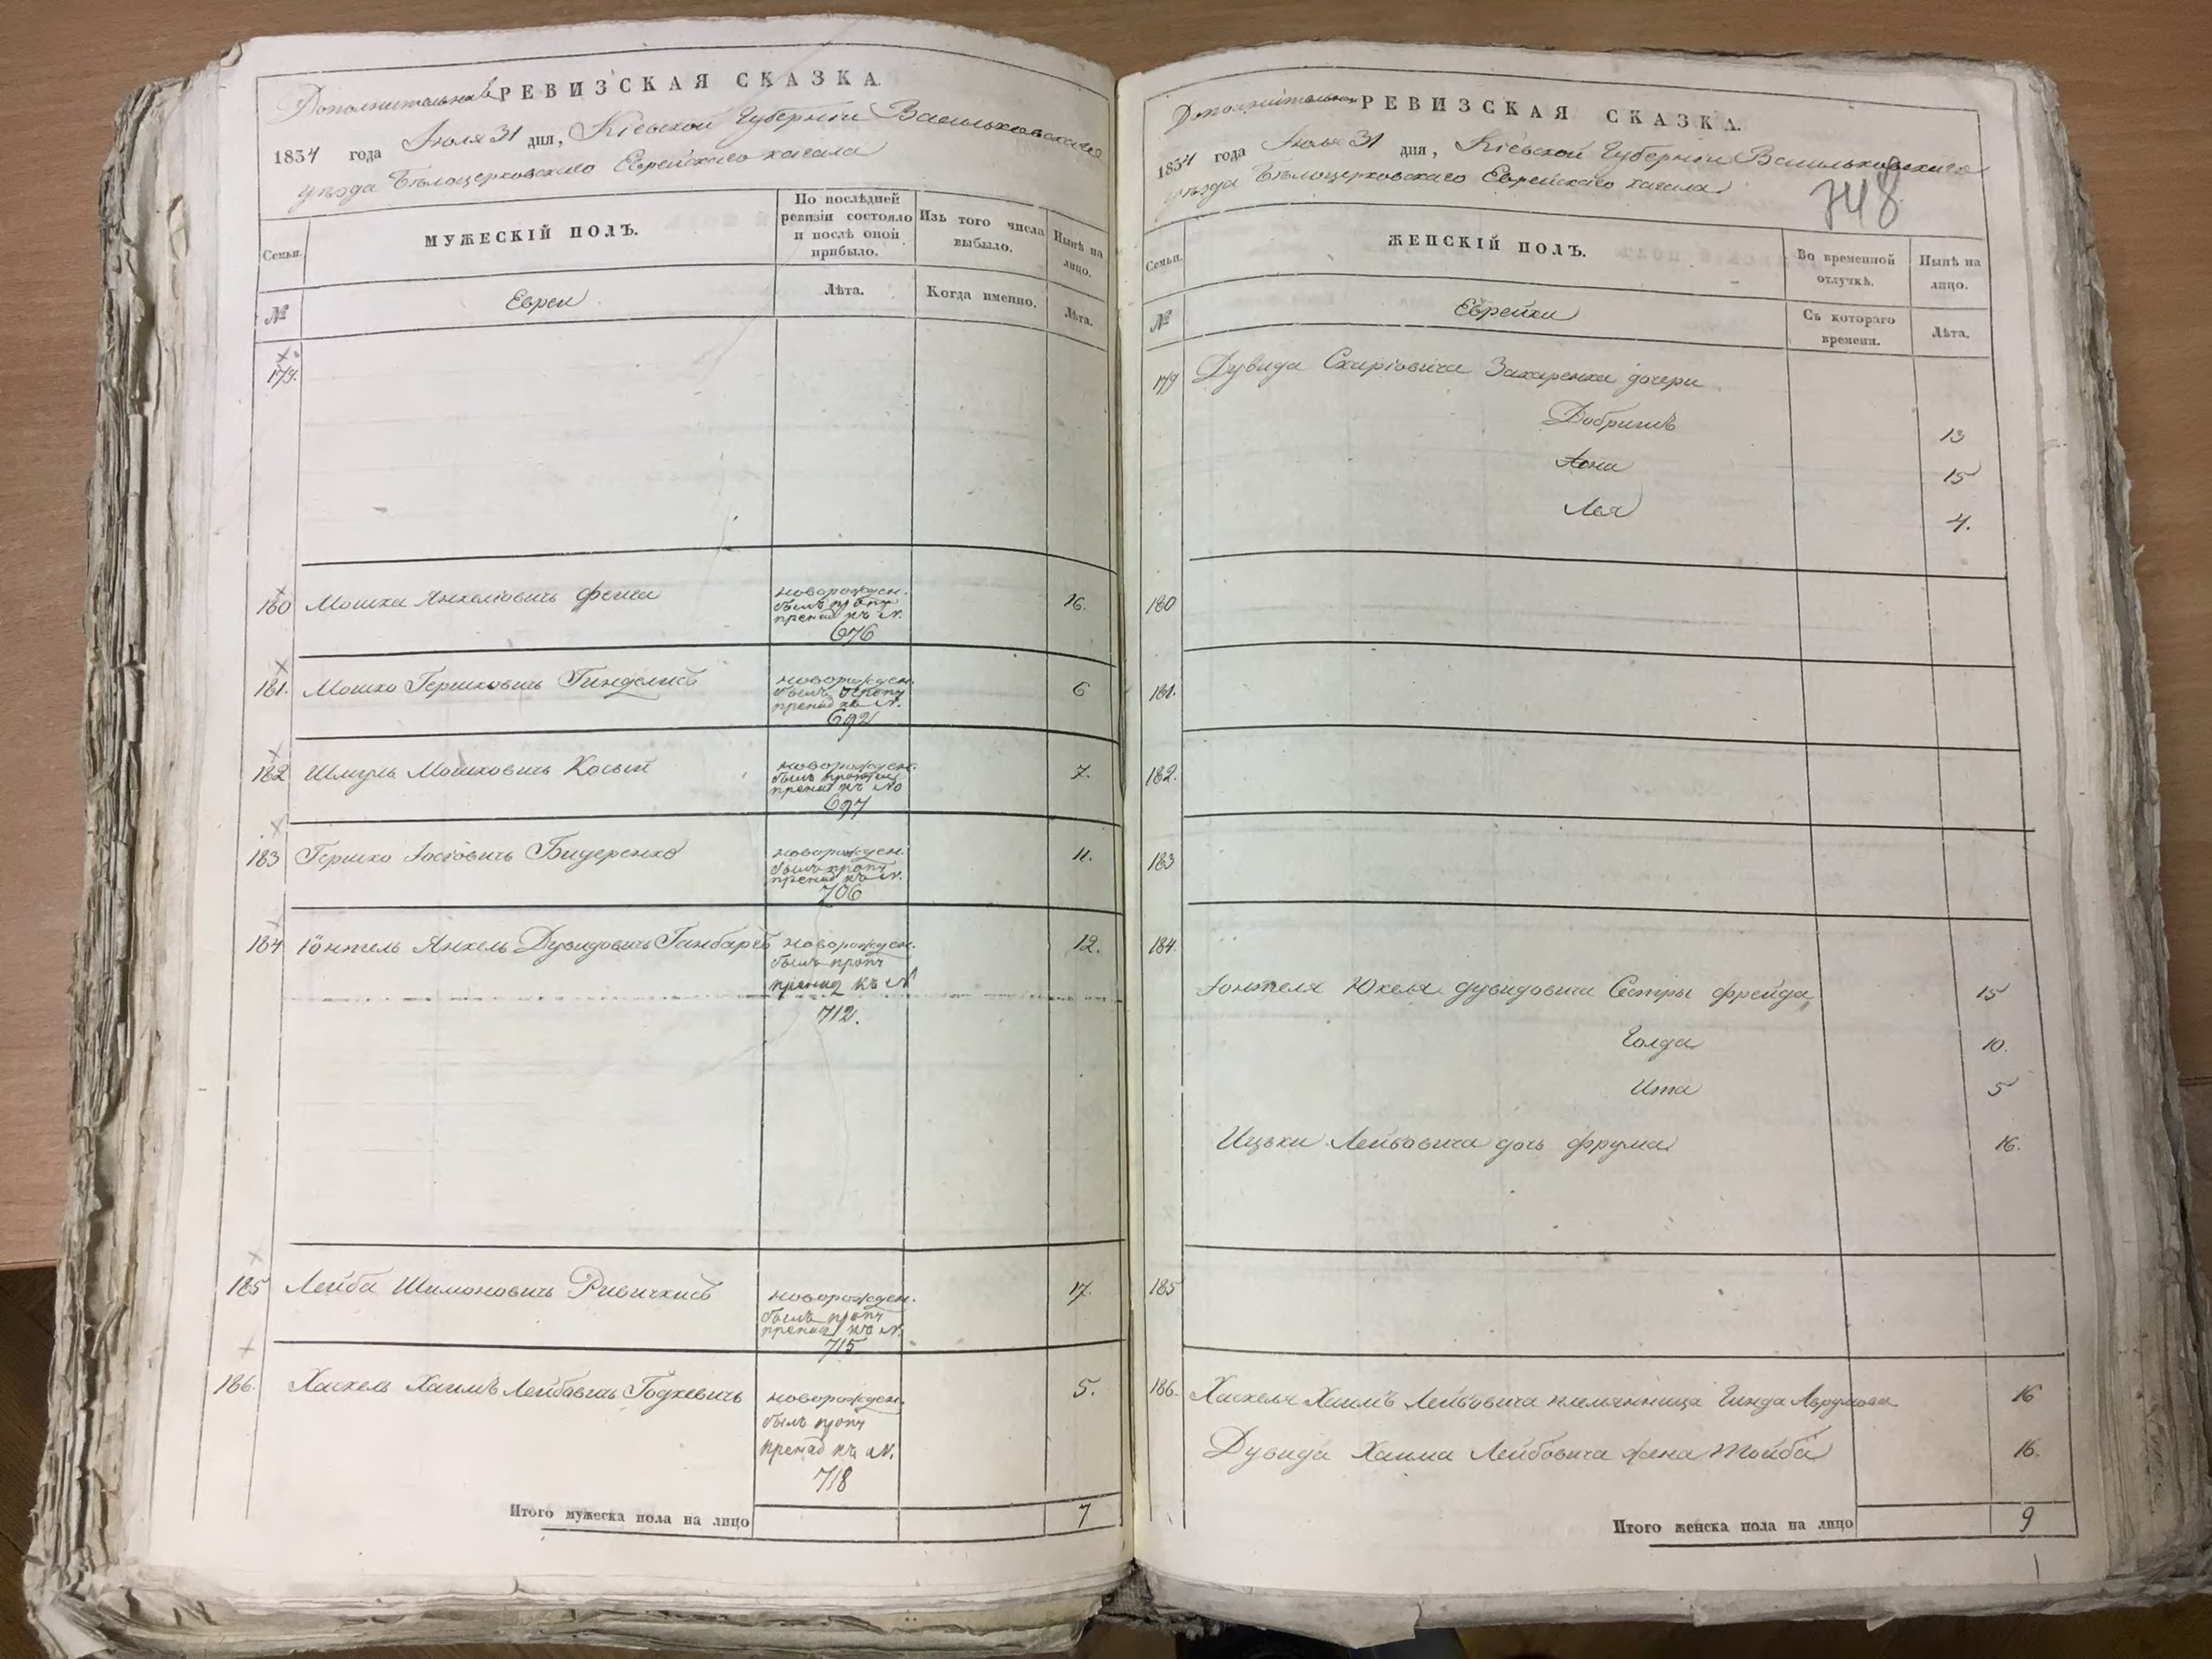 Дополнительная РЕВИЗСКАЯ СКАЗКА
1834 года Июля 31 дня, Кіевской Губерніи Васильковскаго
уѣзда Бѣлоцерковскаго Еврейскаго кагала
Семьи.
МУЖЕСКІЙ ПОЛЪ.
По послѣдней ревизіи состояло и послѣ оной прибыло.
Изъ того числа выбыло.
Нынѣ на лицо.
№
Евреи
Лѣта.
Когда именно.
Лѣта.
179.
180 Мошка Янкелювичь новорожден. 16.
былъ
къ N.
676
181. Мошко Гершковичь новорожден. 6
былъ
N.
692
182 Шмуль Мошковичь Косый новорожден. 7.
былъ
къ No
697
183 Гершко Іосіовичь Бидеренко новорожден. 11.
былъ
къ N.
706
184 Іонтель Янкель Дувидовичь новорожден. 12.
былъ
къ N
712.
185 Лейба Шимоновичь новорожден. 17.
былъ
къ N.
715
186. Хаскель Хаимъ Лейбовичь новорожден. 5.
былъ
къ N.
718
Итого мужеска пола на лицо 7
Дополнительная РЕВИЗСКАЯ СКАЗКА.
1834 года Июля 31 дня, Кіевской Губерніи Васильковскаго
уѣзда Бѣлоцерковскаго Еврейскаго кагала
748
Семьи.
ЖЕНСКІЙ ПОЛЪ.
Во временной отлучкѣ.
Нынѣ на лицо.
№
Еврейки
Съ котораго времени.
Лѣта.
179 Дувида Схаріовича Захаренка дочери
13
15
Лея 4.
180
181.
182.
183
184.
Іонтеля Юкеля Дувидовича Сестры Фрейда 15
Голда 10.
Ита 5
Ицьки Лейбовича дочь Фрума 16.
185
186. Хаскеля Хаимъ Лейбовича племянница Гинда 16
Дувида Хаима Лейбовича жена Тойба 16.
Итого женска пола на лицо 9